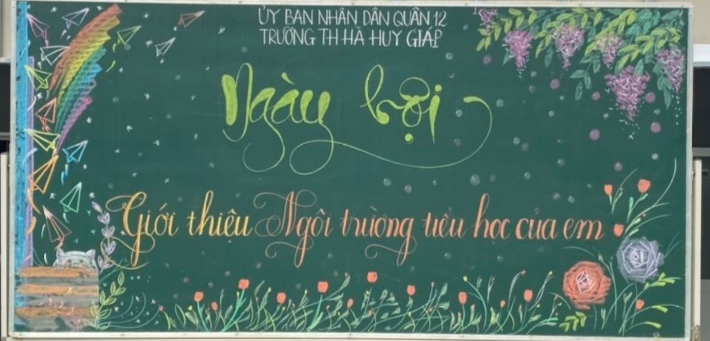 ỦY BAN NHÂN DÂN QUẬN 12
TRƯỜNG TH HÀ HUY GIÁP
Ngày hội
Giới thiệu Ngôi trường tiểu học của em